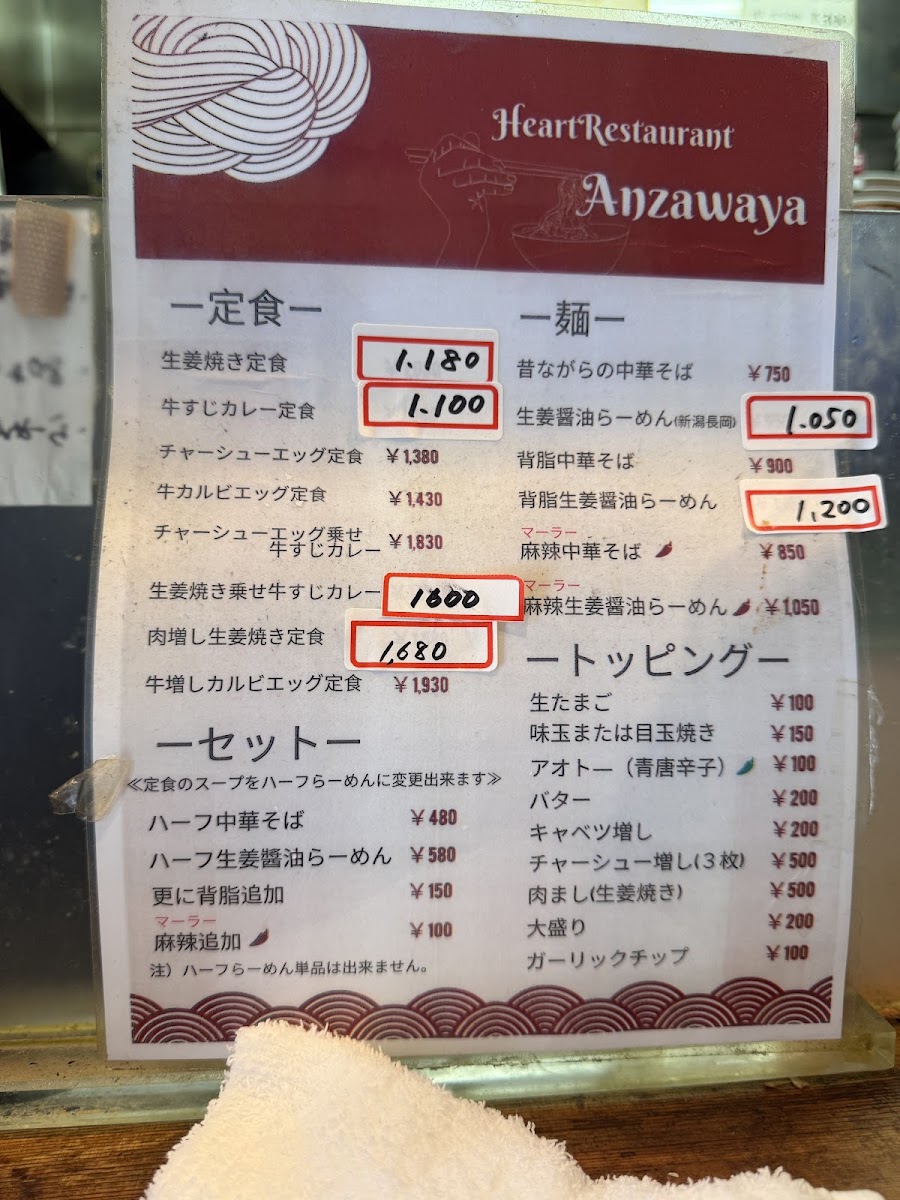 HeartRestaurant
Anzawaya
ー定食ー
生姜焼き定食 1.180
牛すじカレー定食 1.100
チャーシューエッグ定食 ¥1,380
牛カルビエッグ定食 ¥1,430
チャーシューエッグ乗せ
牛すじカレー ¥1,830
生姜焼き乗せ牛すじカレー 1600
肉増し生姜焼き定食 1,680
牛増しカルビエッグ定食 ¥1,930
ーセットー
≪定食のスープをハーフらーめんに変更出来ます≫
ハーフ中華そば ¥480
ハーフ生姜醤油らーめん ¥580
更に背脂追加 ¥150
マーラー
麻辣追加 ¥100
注）ハーフらーめん単品は出来ません。
ー麺ー
昔ながらの中華そば ¥750
生姜醤油らーめん(新潟長岡) 1.050
背脂中華そば ¥900
背脂生姜醤油らーめん 1,200
マーラー
麻辣中華そば ¥850
マーラー
麻辣生姜醤油らーめん ¥1,050
ートッピングー
生たまご ¥100
味玉または目玉焼き ¥150
アオトー（青唐辛子） ¥100
バター ¥200
キャベツ増し ¥200
チャーシュー増し(３枚) ¥500
肉まし(生姜焼き) ¥500
大盛り ¥200
ガーリックチップ ¥100